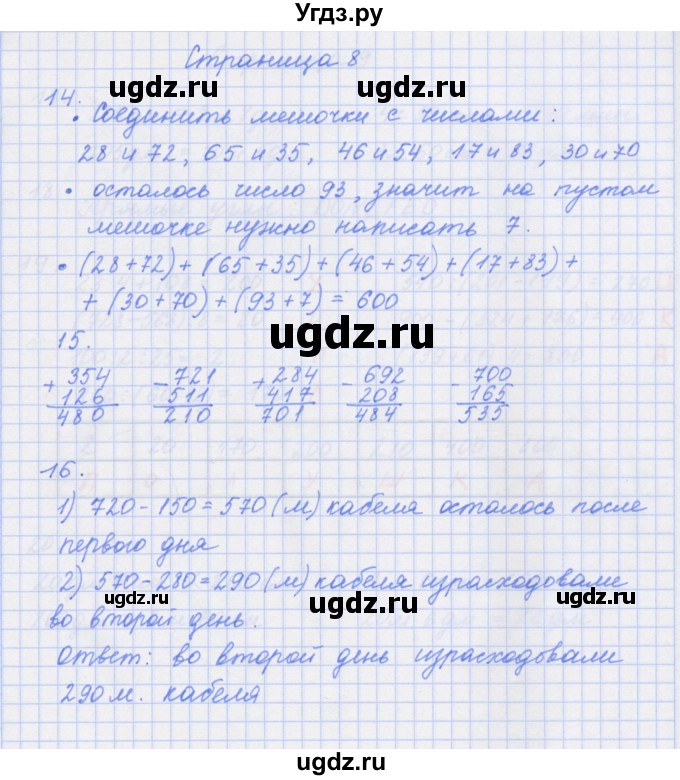 Угдз.ру
Страница 8
ugdz.ru ugdz.ru
14.
• Соединить мешочки с числами:
28 и 72, 65 и 35, 46 и 54, 17 и 83, 30 и 70
• осталось число 93, значит на пустом
мешочке нужно написать 7.
• (28+72) + (65+35) + (46+54) + (17+83) +
+ (30+70) + (93+7) = 600
ugdz.ru
15.
+ 354 - 721 + 284 - 692 - 700
126 511 417 208 165
480 210 701 484 535
ugdz.ru
16.
1) 720-150=570(м) кабеля осталось после
первого дня
2) 570-280=290(м) кабеля израсходовали
ugdz.ru ugdz.ru
во второй день.
Ответ: во второй день израсходовали
290 м. кабеля
ugdz.ru